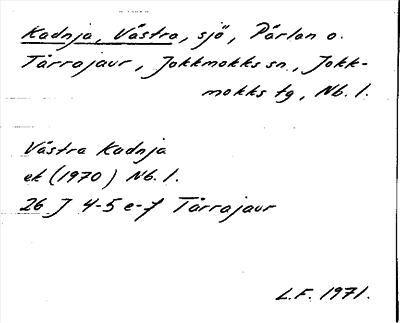 Kadnja, Västra, sjö, Pärlan o.
Tårrajaur, Jokkmokks sn., Jokk-
mokks tg, Nb. l.
Västra Kadnja
ek (1970) Nb. l.
26 J 4-5 e-f Tårrajaur
L.F. 1971.